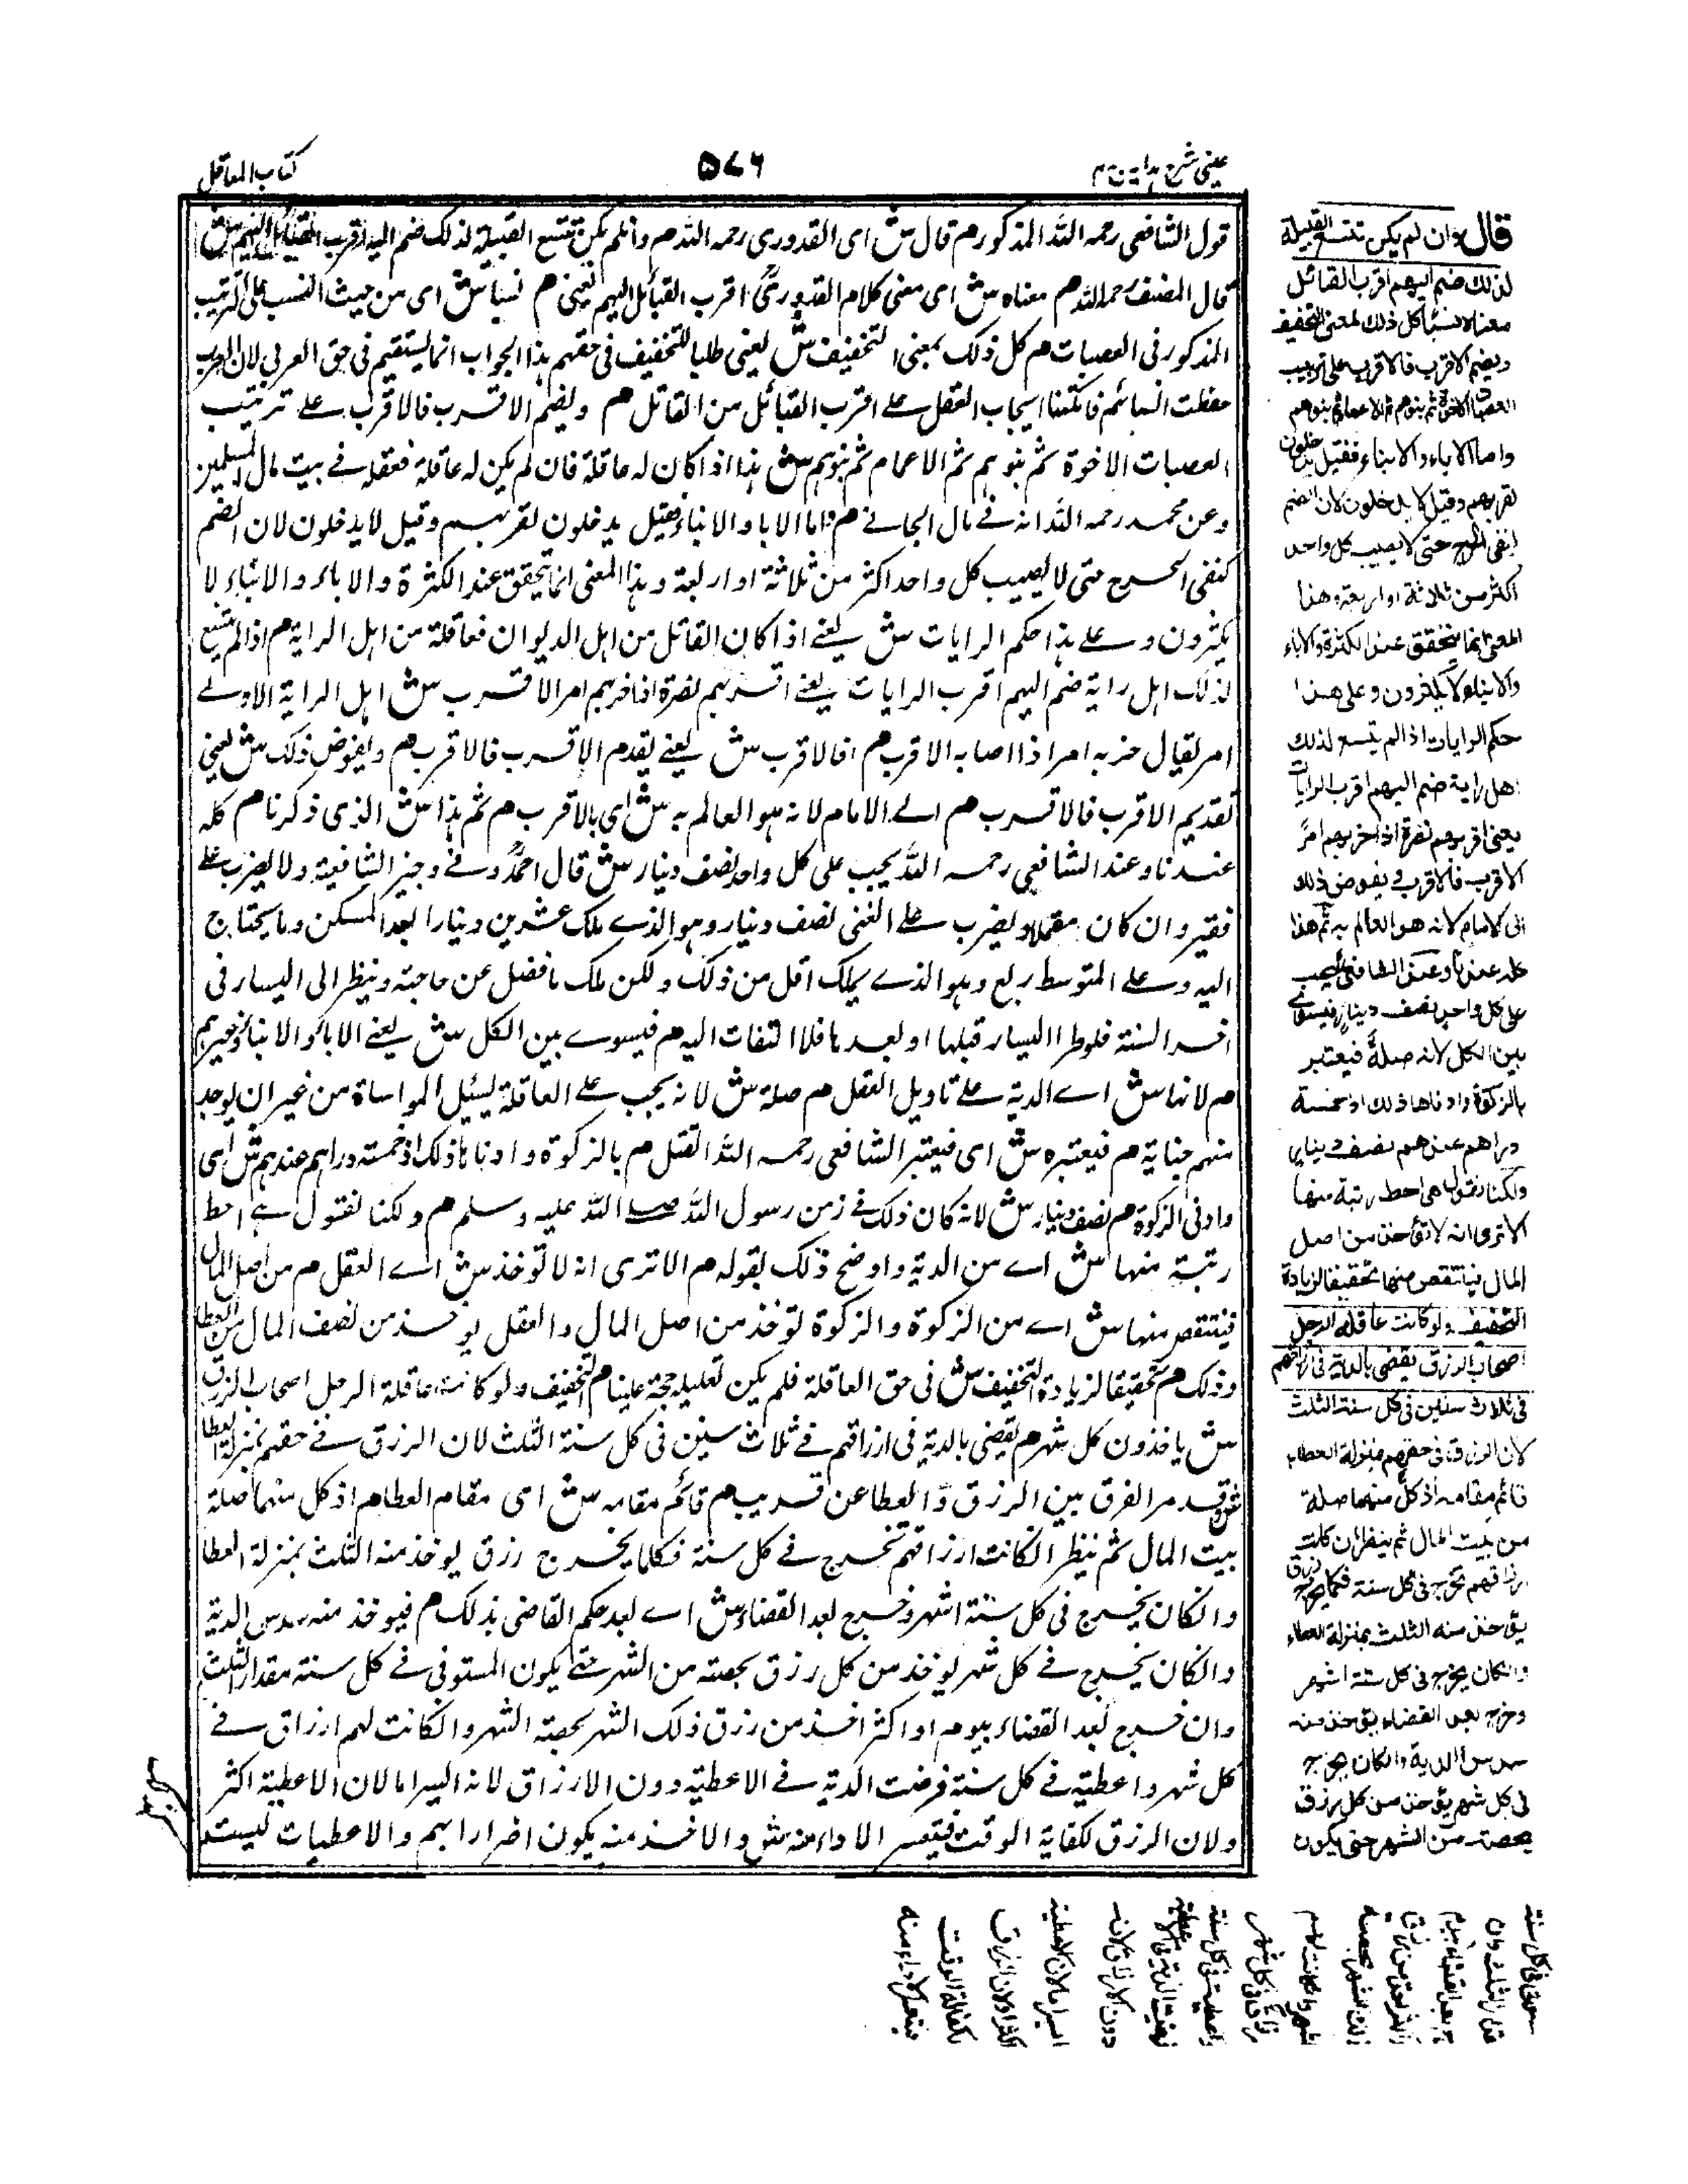 عینی شرح ہدایہ ج ٤
٥٧٦
كتاب المعاقل
قول الشافعى رحمه الله المذكور م قال ش اى القدورى رحمه الله م وان لم يكن تتسع القبيلة لذلك ضم اليه اقرب القبائل اليهم ش
قال المصنف رحمه الله م معناه ش اى معنى كلام القدورى اقرب القبائل اليهم يعنى م نسبا ش اى من حيث النسب على الترتيب
المذكور فى العصبات م كل ذلك بمعنى التخفيف ش يعنى طلبا للتخفيف فى حقهم هذا الجواب انما يستقيم فى حق العربى لان العرب
حفظت انسابهم فامكننا ايجاب العقل على اقرب القبائل من القاتل م ويضم الاقرب فالاقرب على ترتيب
العصبات الاخوة ثم بنوهم ثم الاعمام ثم بنوهم ش هذا اذا كان له عاقلة فان لم يكن له عاقلة فعقله فى بيت مال المسلمين
وعن محمد رحمه الله انه فى مال الجانى م واما الابا والابناء فقيل يدخلون لقربهم وقيل لا يدخلون لان الضم
لنفى الحرج حتى لا يصيب كل واحد اكثر من ثلاثة او اربعة وهذا المعنى انما يتحقق عند الكثرة والاباء والابناء لا
يكثرون و على هذا حكم الرايات ش يعنى اذا كان القاتل من اهل الديوان فعاقلة من اهل الراية م اذا لم يتسع
لذلك اهل راية ضم اليهم اقرب الرايات يعنى اقربهم نصرة اذا حزبهم امر الاقرب ش اهل الراية الاولى
امر يقال حزبه امر اذا اصابه الاقرب م فالاقرب ش يعنى يقدم الاقرب فالاقرب م ويفوض ذلك ش يعنى
تقديم الاقرب فالاقرب م الى الامام لانه هو العالم به ش اى بالاقرب م ثم هذا ش الذى ذكرنا م كله
عندنا وعند الشافعى رحمه الله يجب على كل واحد نصف دينار ش قال احمد وفى وجيز الشافعية ولا يضرب على
فقير وان كان معتملا ويضرب على الغنى نصف دينار وهو الذى ملك عشرين دينارا بعد المسكن وما يحتاج
اليه و على المتوسط ربع وهو الذى يملك اقل من ذلك ولكن ملك ما فضل عن حاجته وينظر الى اليسار فى
اخر السنة فلو طرا اليسار قبلها او بعدها فلا التفات اليه م فيسوى بين الكل ش يعنى الاباء والابناء وغيرهم
م لانها ش اى الدية على تاويل العقل م صلة ش لانه يجب على العاقلة بسبيل المواساة من غير ان يوجد
منهم جناية م فيعتبره ش اى فيعتبر الشافعى رحمه الله العقل م بالزكوة وادناها ذلك اذ خمسة دراهم عندهم ش اى
وادنى الزكوة م نصف دينار ش لانه كان ذلك فى زمن رسول الله صلى الله عليه وسلم م ولكنا نقول هى احط
رتبة منها ش اى من الدية واوضح ذلك بقوله م الا ترى انه لا توخذ ش اى العقل م من اصل المال
فينتقص منها ش اى من الزكوة والزكوة توخذ من اصل المال والعقل يوخذ من نصف المال من العطا
وذلك م تحقيقا لزيادة التخفيف ش فى حق العاقلة فلم يكن تعليله حجة علينا م ولو كانت عاقلة الرجل اصحاب الرزق
ش ياخذون كل شهر م يقضى بالدية فى ارزاقهم فى ثلاث سنين فى كل سنة الثلث لان الرزق فى حقهم بمنزلة العطا
ش قد مر الفرق بين الرزق والعطا عن قريب م قائم مقامه ش اى مقام العطا م اذ كل منهما صلة
بيت المال ثم ينظر ان كانت ارزاقهم تخرج فى كل سنة فكلما يخرج رزق يوخذ منه الثلث بمنزلة العطا
وان كان يخرج فى كل ستة اشهر وخرج بعد القضاء ش اى بعد حكم القاضى بذلك م فيوخذ منه سدس الدية
وان كان يخرج فى كل شهر يوخذ من كل رزق بحصته من الشهر حتى يكون المستوفى فى كل سنة مقدار الثلث
وان خرج بعد القضاء بيوم او اكثر اخذ من رزق ذلك الشهر بحصة الشهر وان كانت لهم ارزاق فى
كل شهر واعطية فى كل سنة فرضت الدية فى الاعطية دون الارزاق لانه ايسر اما لان الاعطية اكثر
ولان الرزق لكفاية الوقت فيتعسر الاداء منه ش والاخذ منه يكون اضرارا بهم والاعطيات ليست
قال وان لم يكن تتسع القبيلة
لذلك ضم اليهم اقرب القبائل
معناه نسبا كل ذلك لمعنى التخفيف
ويضم الاقرب فالاقرب على ترتيب
العصبات الاخوة ثم بنوهم ثم الاعمام ثم بنوهم
واما الاباء والابناء فقيل يدخلون
لقربهم وقيل لا يدخلون لان الضم
لنفى الحرج حتى لا يصيب كل واحد
اكثر من ثلاثة او اربعة وهذا
المعنى انما يتحقق عند الكثرة والاباء
والابناء لا يكثرون وعلى هذا
حكم الرايات اذا لم يتسع لذلك
اهل راية ضم اليهم اقرب الرايات
يعنى اقربهم نصرة اذا حزبهم امر
الاقرب فالاقرب ويفوض ذلك
الى الامام لانه هو العالم به ثم هذا
كله عندنا وعند الشافعى يجب
على كل واحد نصف دينار فيسوى
بين الكل لانه صلة فيعتبر
بالزكوة وادناها ذلك اذ خمسة
دراهم عندهم نصف دينار
ولكنا نقول هى احط رتبة منها
الا ترى انه لا تؤخذ من اصل
المال فينتقص منها تحقيقا لزيادة
التخفيف ولو كانت عاقلة الرجل
اصحاب الرزق يقضى بالدية فى ارزاقهم
فى ثلاث سنين فى كل سنة الثلث
لان الرزق فى حقهم بمنزلة العطاء
قائم مقامه اذ كل منهما صلة
من بيت المال ثم ينظر ان كانت
ارزاقهم تخرج فى كل سنة فكما يخرج رزق
يؤخذ منه الثلث بمنزلة العطاء
وان كان يخرج فى كل ستة اشهر
وخرج بعد القضاء يؤخذ منه
سدس الدية وان كان يخرج
فى كل شهر يؤخذ من كل رزق
بحصته من الشهر حتى يكون
المستوفى فى كل سنة
مقدار الثلث وان
خرج بعد القضاء بيوم
او اكثر اخذ من رزق
ذلك الشهر بحصة
الشهر وان كانت لهم
ارزاق فى كل شهر
واعطية فى كل سنة
فرضت الدية فى الاعطية
دون الارزاق لانه
ايسر اما لان الاعطية
اكثر ولان الرزق
لكفاية الوقت
فيتعسر الاداء منه